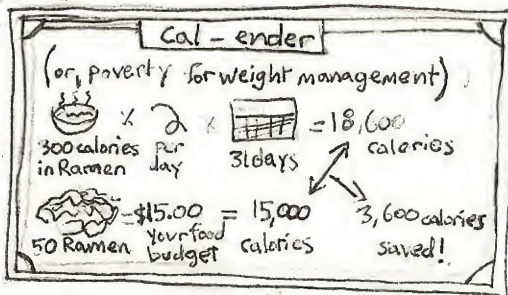 Cal-ender
(or, poverty for weight management)
300 calories in Ramen × 2 per day × 31 days = 18,600 calories
50 Ramen = $15.00 your food budget = 15,000 calories
3,600 calories saved!